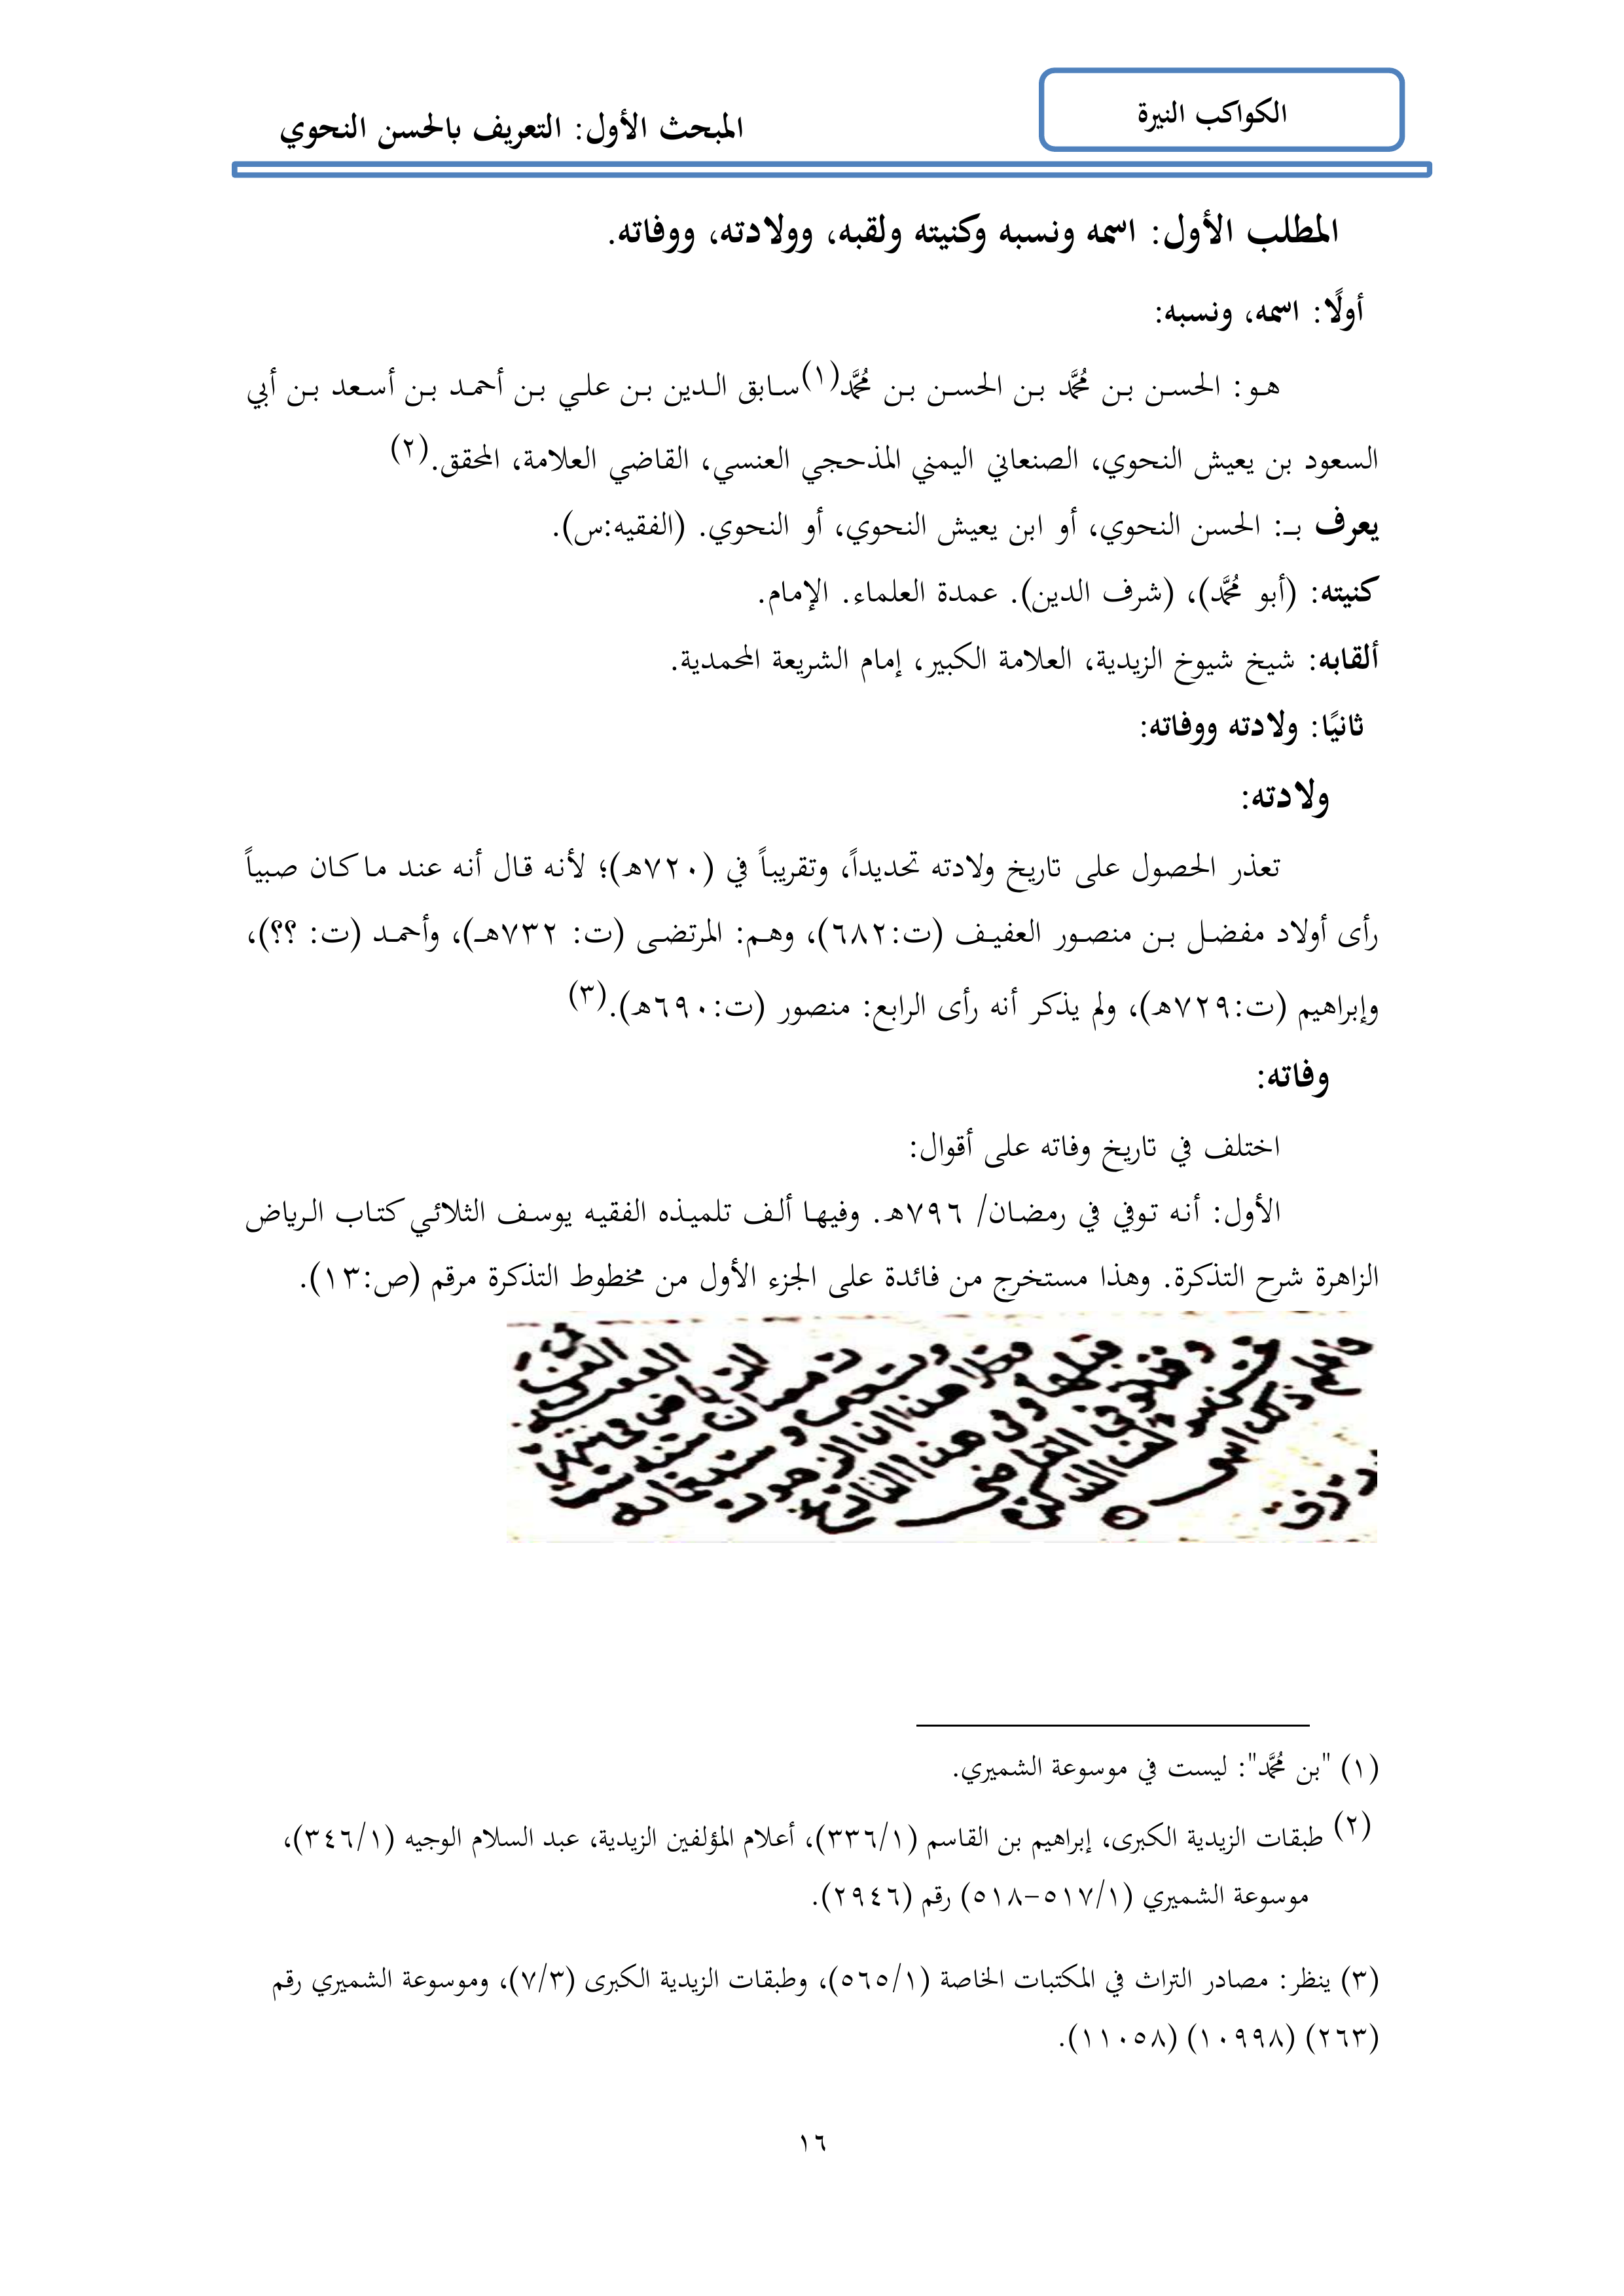 الكواكب النيرة
المبحث الأول: التعريف بالحسن النحوي
المطلب الأول: اسمه ونسبه وكنيته ولقبه، وولادته، ووفاته.
أولًا: اسمه، ونسبه:
هو: الحسن بن محمَّد بن الحسن بن محمَّد(١)سابق الدين بن علي بن أحمد بن أسعد بن أبي
السعود بن يعيش النحوي، الصنعاني اليمني المذحجي العنسي، القاضي العلامة، المحقق.(٢)
يعرف بـ: الحسن النحوي، أو ابن يعيش النحوي، أو النحوي. (الفقيه:س).
كنيته: (أبو محمَّد)، (شرف الدين). عمدة العلماء. الإمام.
ألقابه: شيخ شيوخ الزيدية، العلامة الكبير، إمام الشريعة المحمدية.
ثانيًا: ولادته ووفاته:
ولادته:
تعذر الحصول على تاريخ ولادته تحديداً، وتقريباً في (٧٢٠هـ)؛ لأنه قال أنه عند ما كان صبياً
رأى أولاد مفضل بن منصور العفيف (ت:٦٨٢)، وهم: المرتضى (ت: ٧٣٢هـ)، وأحمد (ت: ؟؟)،
وإبراهيم (ت:٧٢٩هـ)، ولم يذكر أنه رأى الرابع: منصور (ت:٦٩٠هـ).(٣)
وفاته:
اختلف في تاريخ وفاته على أقوال:
الأول: أنه توفي في رمضان/ ٧٩٦هـ. وفيها ألف تلميذه الفقيه يوسف الثلائي كتاب الرياض
الزاهرة شرح التذكرة. وهذا مستخرج من فائدة على الجزء الأول من مخطوط التذكرة مرقم (ص:١٣).
(١) "بن محمَّد": ليست في موسوعة الشميري.
(٢) طبقات الزيدية الكبرى، إبراهيم بن القاسم (٣٣٦/١)، أعلام المؤلفين الزيدية، عبد السلام الوجيه (٣٤٦/١)،
موسوعة الشميري (٥١٧/١-٥١٨) رقم (٢٩٤٦).
(٣) ينظر: مصادر التراث في المكتبات الخاصة (٥٦٥/١)، وطبقات الزيدية الكبرى (٧/٣)، وموسوعة الشميري رقم
(٢٦٣) (١٠٩٩٨) (١١٠٥٨).
١٦